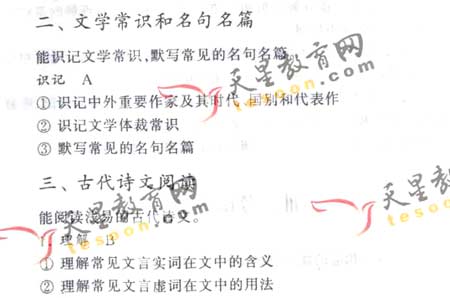 二、文学常识和名句名篇
能识记文学常识、默写常见的名句名篇。
识记 A
① 识记中外重要作家及其时代、国别和代表作
② 识记文学体裁常识
③ 默写常见的名句名篇
三、古代诗文阅读
能阅读浅易的古代诗文。
1. 理解 B
① 理解常见文言实词在文中的含义
② 理解常见文言虚词在文中的用法
天星教育网
tesoon.com
天星教育网
tesoon.com
天星教育网
tesoon.com